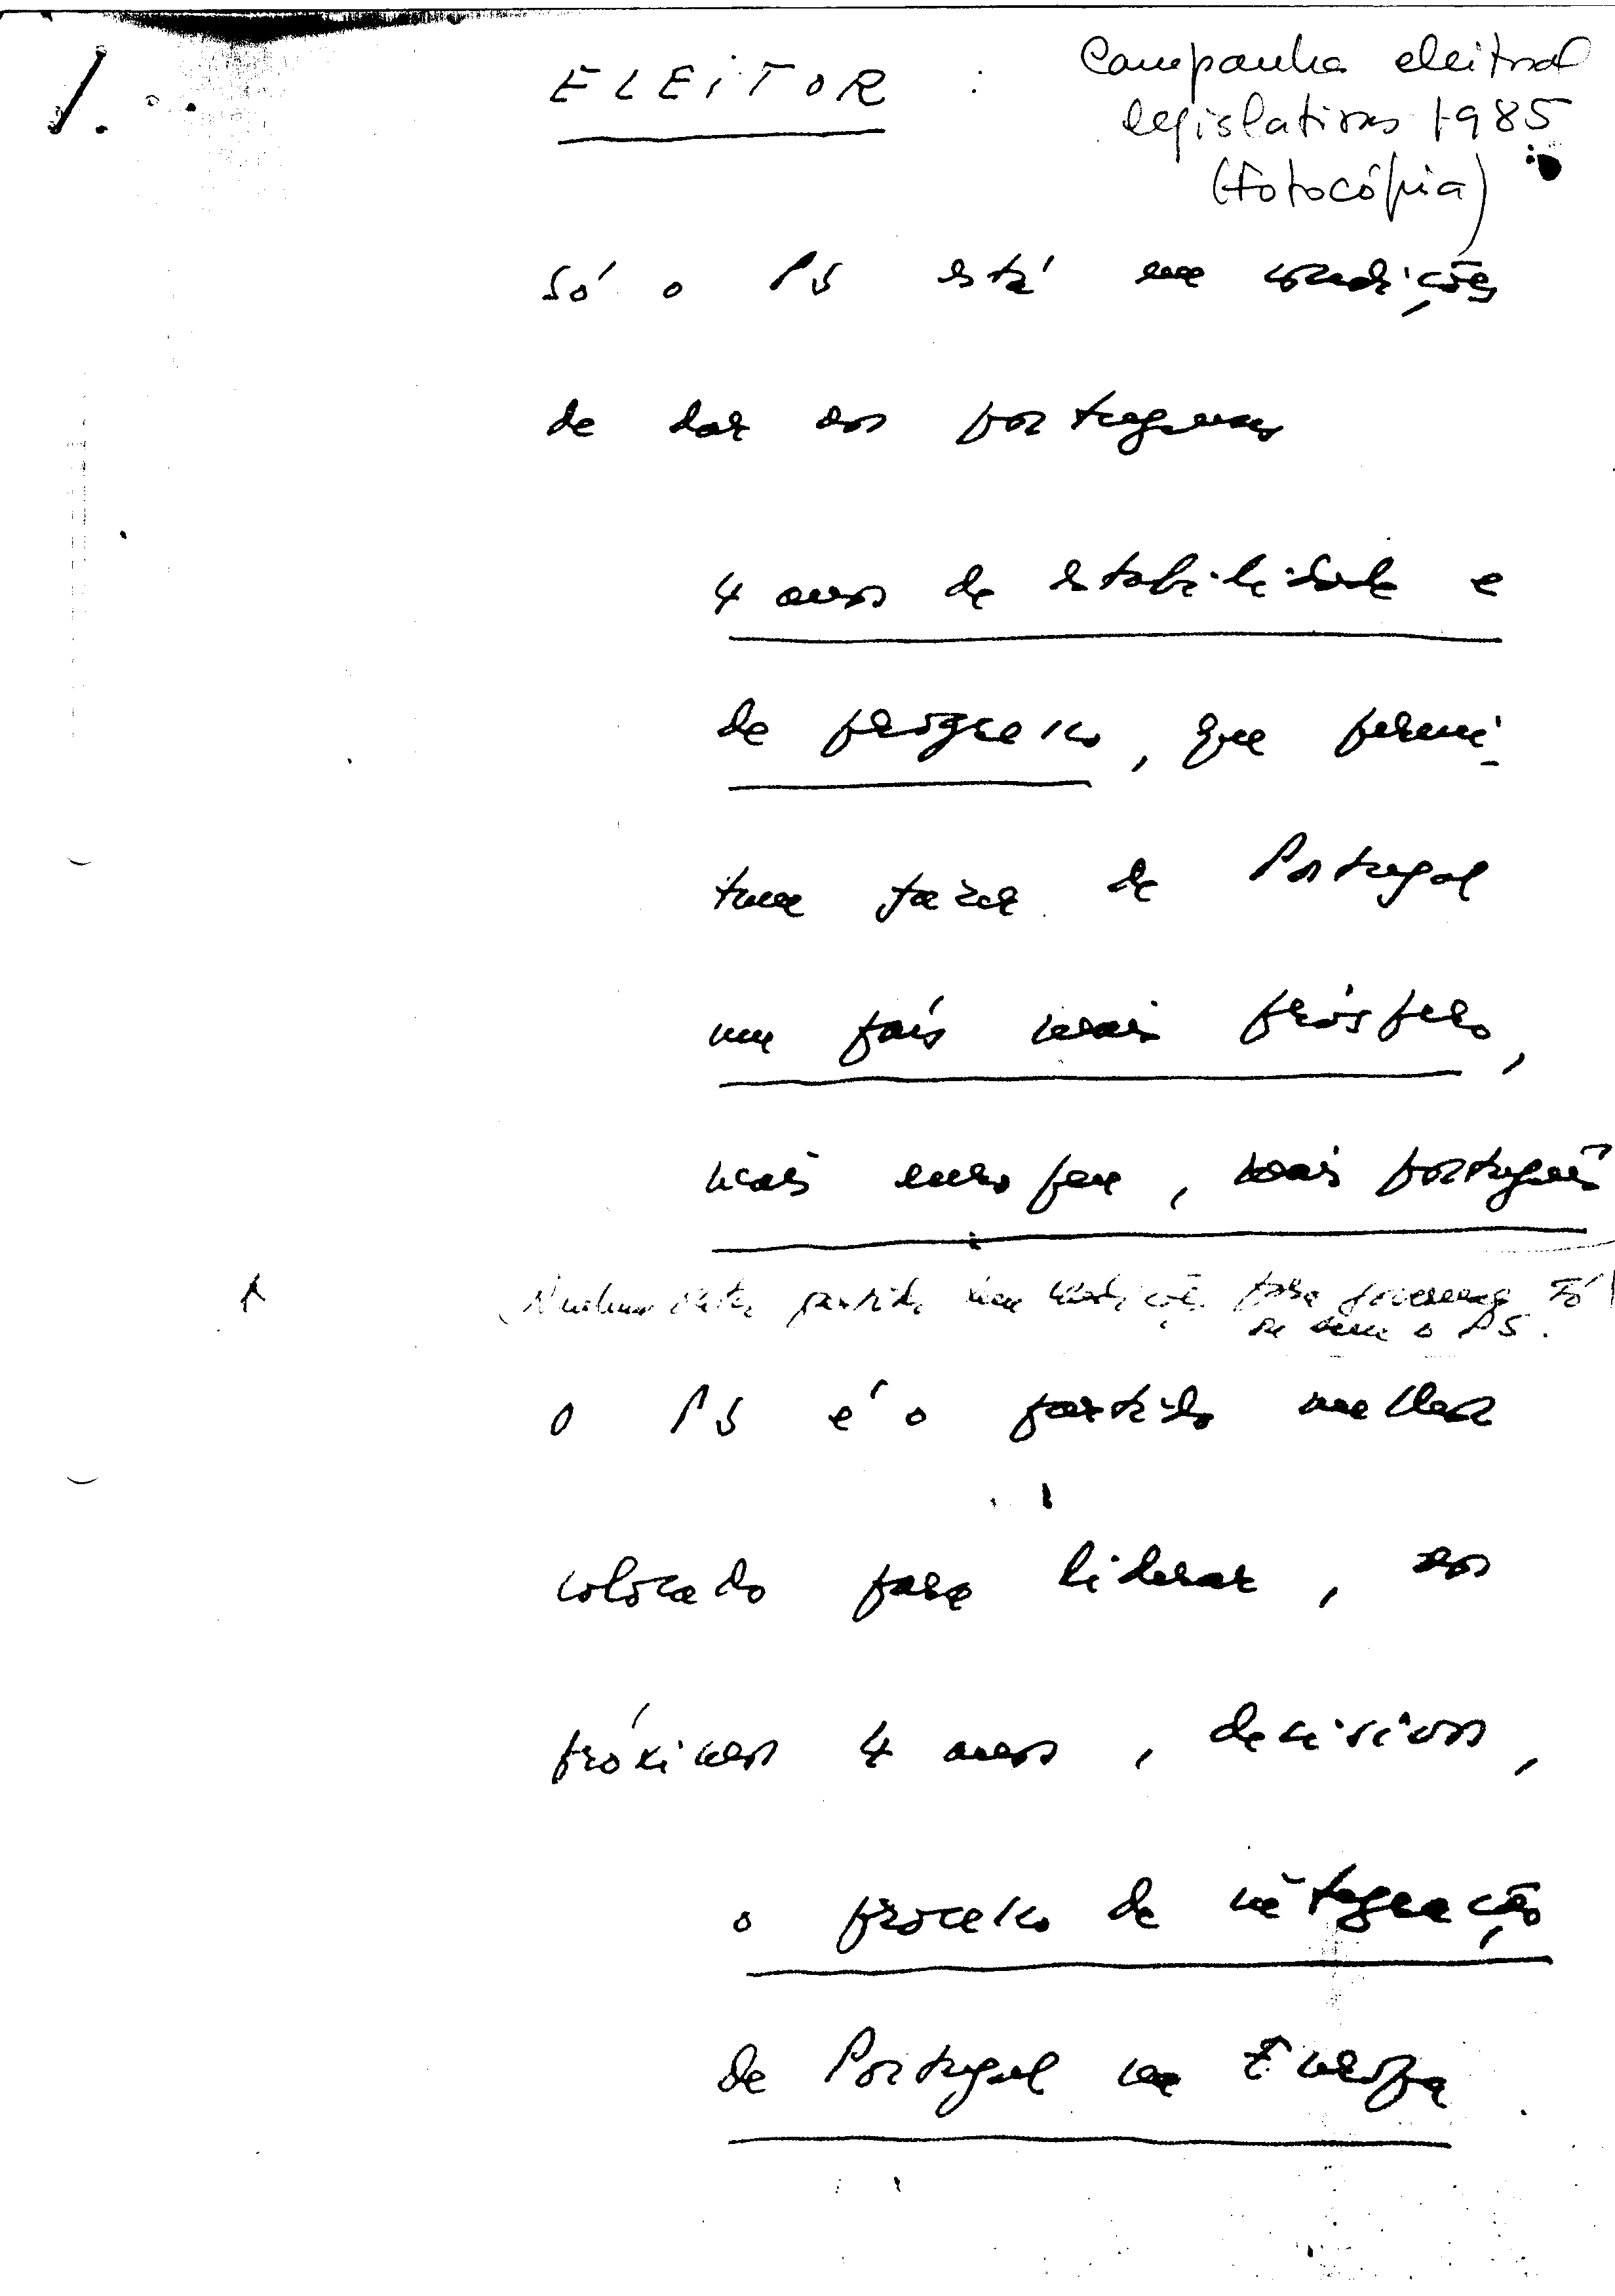 1.
ELEiTOR :
Campanha eleitoral
legislativas 1985
(fotocópia)
Só o PS está em condições
de dar aos portugueses
4 anos de estabilidade e
de progresso, que permi-
tam fazer de Portugal
um país mais próspero,
mais europeu, mais português
(Nenhum outro partido tem condições para governar. Só
se tem o PS.
O PS é o partido melhor
colocado para liderar, nos
próximos 4 anos, decisivos,
o processo de integração
de Portugal na Europa